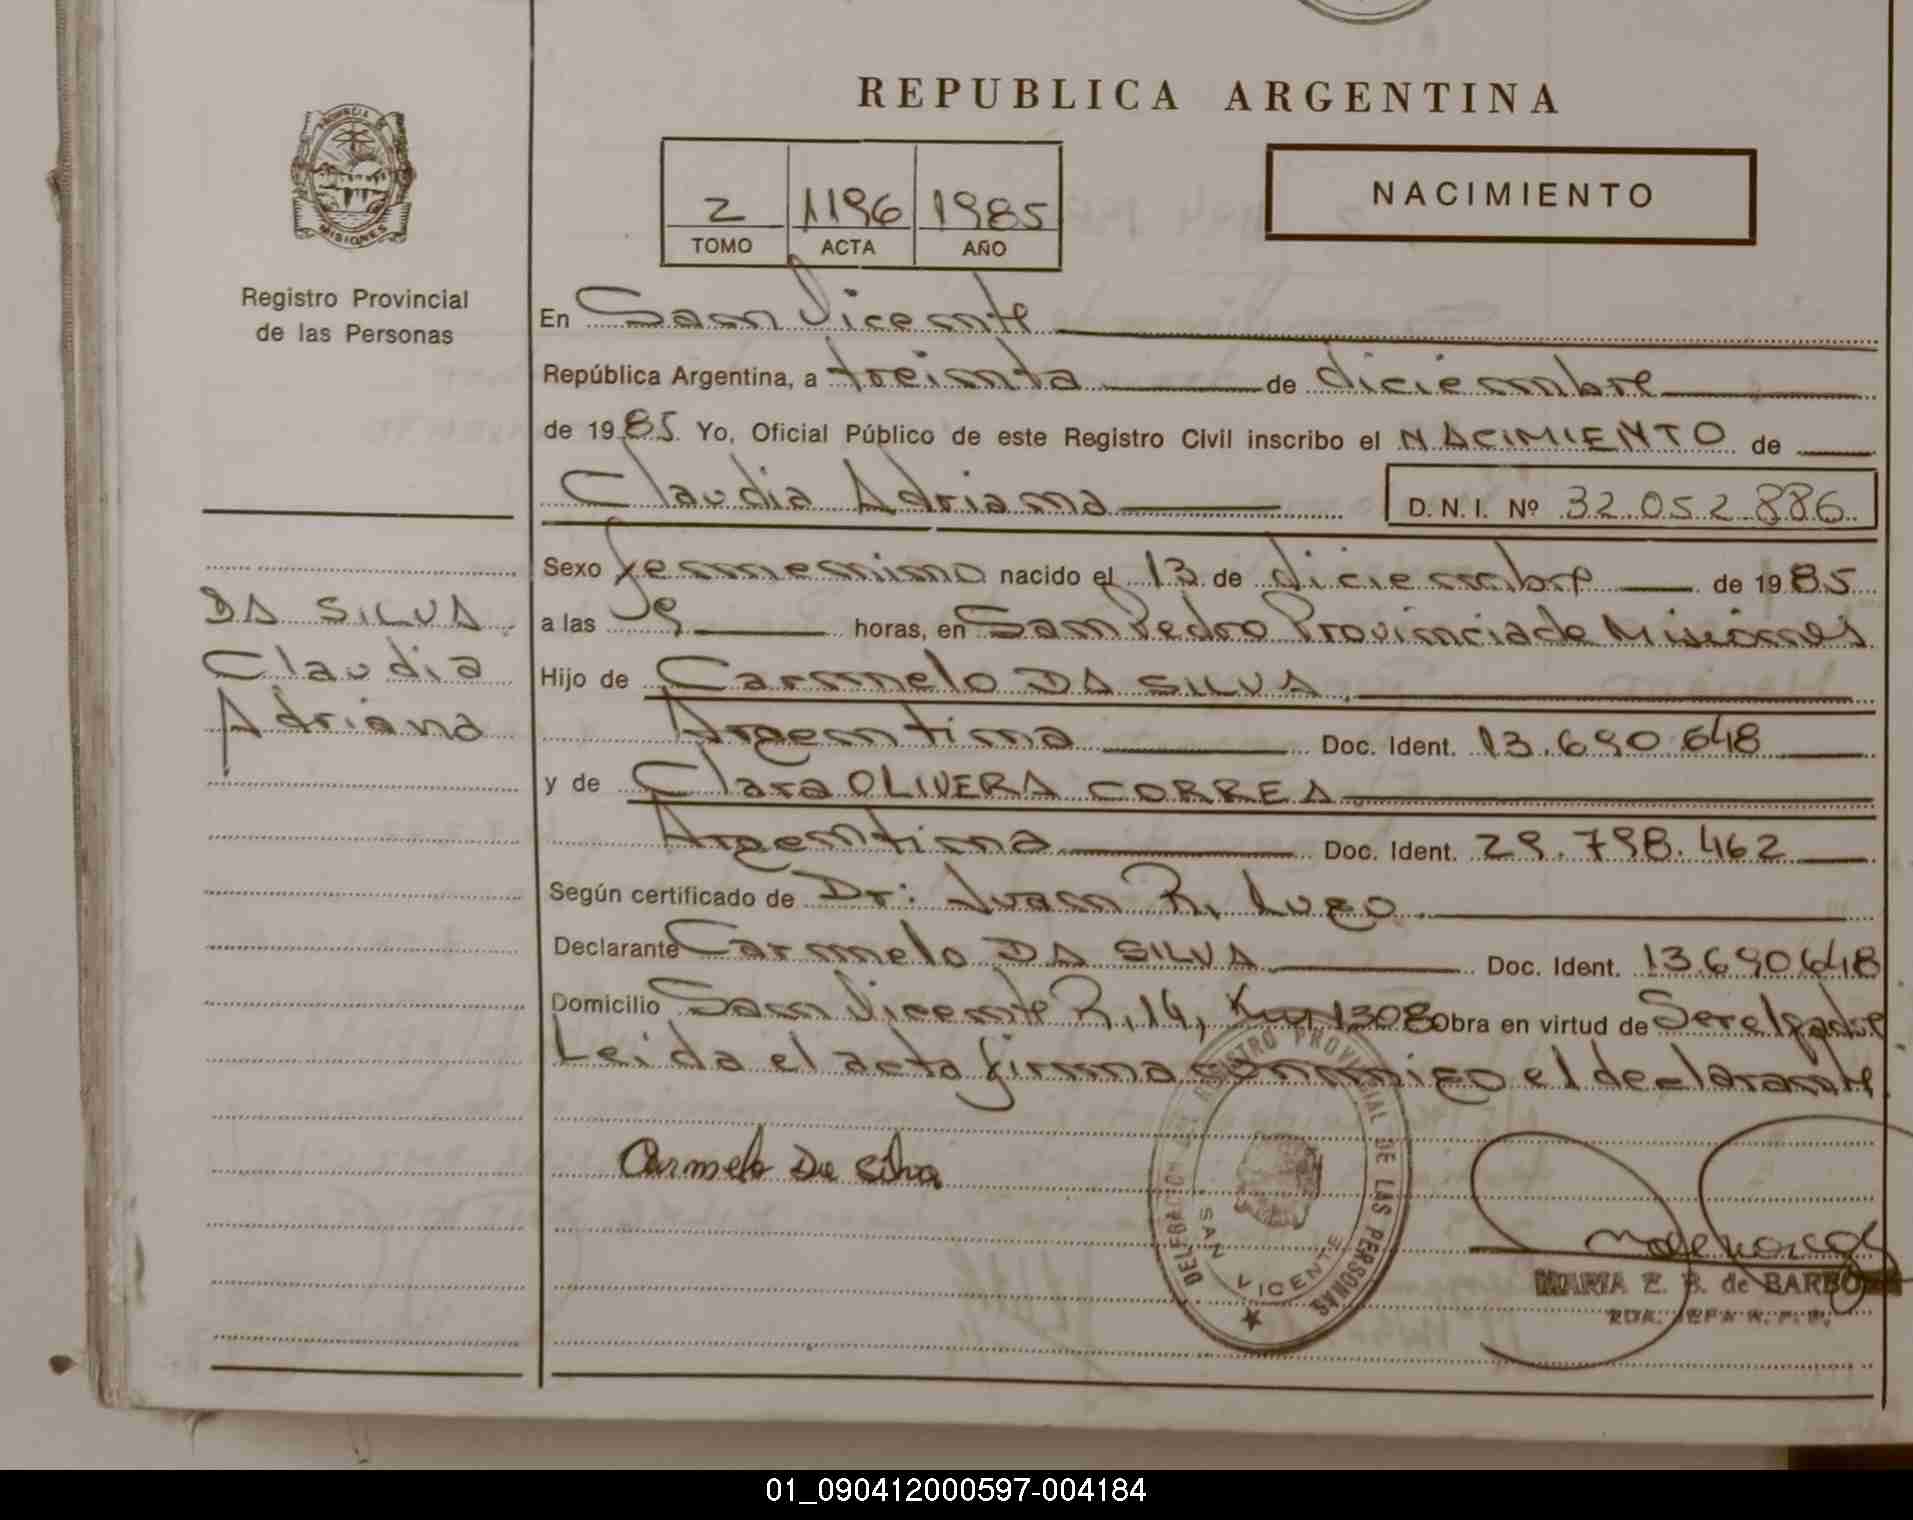 REPUBLICA ARGENTINA
PROVINCIA DE
MISIONES
Registro Provincial
de las Personas
2 1196 1985
TOMO ACTA AÑO
NACIMIENTO
En San Vicente
República Argentina, a treinta de diciembre
de 1985. Yo, Oficial Público de este Registro Civil inscribo el NACIMIENTO de
Claudia Adriana D. N. I. Nº 32.052.886
Sexo femenino nacido el 13 de diciembre de 1985
a las 9 horas, en San Pedro Provincia de Misiones
Hijo de Carmelo DA SILVA
Argentina Doc. Ident. 13.690.648
y de Clara OLIVERA CORREA
Argentina Doc. Ident. 29.798.462
Según certificado de Dr: Juan R. Lugo
Declarante Carmelo DA SILVA Doc. Ident. 13.690.648
Domicilio San Vicente R. 14, Km 1308 Obra en virtud de Ser el padre
Leida el acta firma conmigo el declarante
DA SILVA
Claudia
Adriana
Carmelo Da Silva
DELEGACION REGISTRO PROVINCIAL DE LAS PERSONAS
SAN VICENTE
MARIA E. B. de BARBO
JEFA R. P. P.
01_090412000597-004184